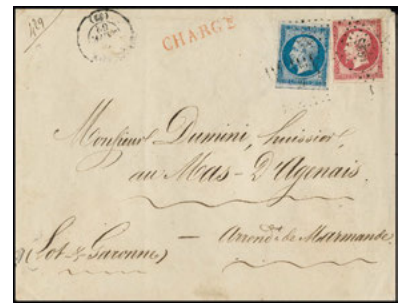 429
CHARGÉ
Monsieur Dumini, huissier,
au Mas-D'Agenais.
(Lot & Garonne) — Arrond.t de Marmande.